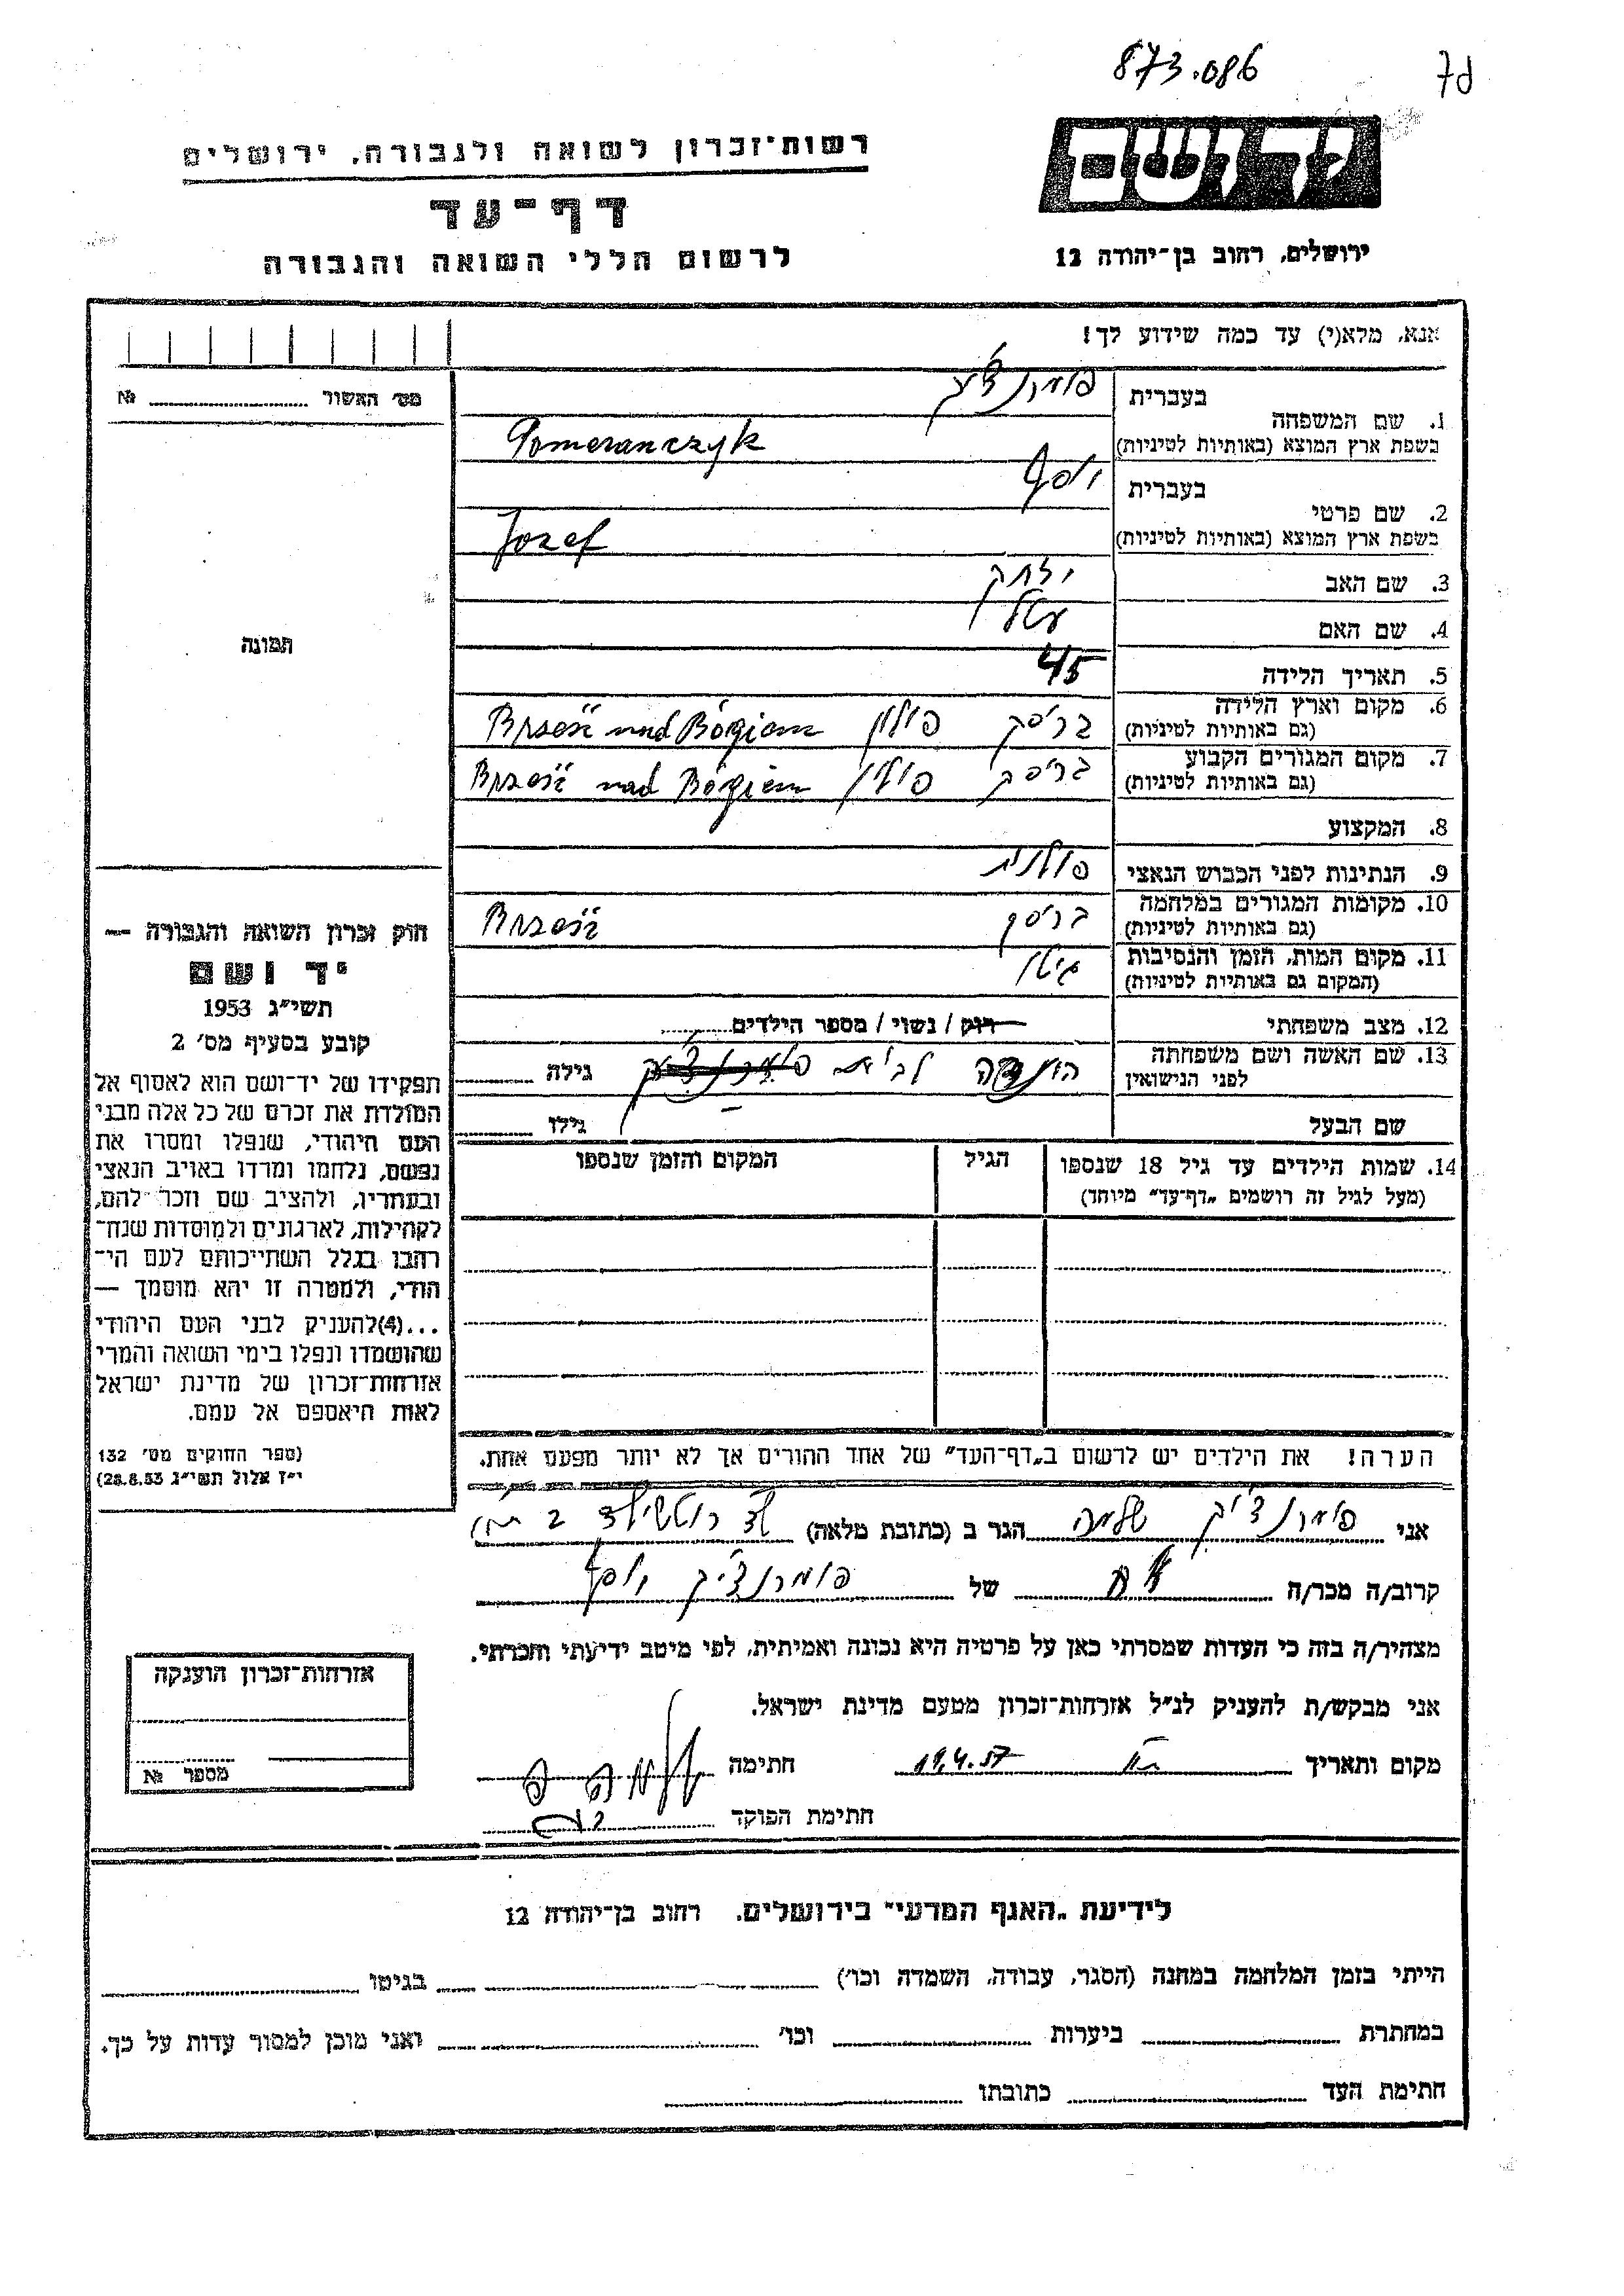 873.086
רשות־זכרון לשואה ולגבורה, ירושלים
דף־עד
לרשום חללי השואה והגבורה
יד ושם
ירושלים, רחוב בן־יהודה 12
אנא, מלא(י) עד כמה שידוע לך!
מס׳ האשור № 
1. שם המשפחה
בעברית פומרנצ׳יק
בשפת ארץ המוצא (באותיות לטיניות) Pomeranczyk
2. שם פרטי
בעברית יוסף
בשפת ארץ המוצא (באותיות לטיניות) Jozef
3. שם האב יצחק
4. שם האם
5. תאריך הלידה 45
6. מקום וארץ הלידה
(גם באותיות לטיניות) בריסק פולין Brześź nad Bógiem
7. מקום המגורים הקבוע
(גם באותיות לטיניות) בריסק פולין Brześź nad Bógiem
8. המקצוע
9. הנתינות לפני הכבוש הנאצי פולנית
10. מקומות המגורים במלחמה
(גם באותיות לטיניות) בריסק Brześź
11. מקום המות, הזמן והנסיבות
(המקום גם באותיות לטיניות) גיטו
12. מצב משפחתי רוק / נשוי / מספר הילדים
13. שם האשה ושם משפחתה
לפני הנישואין לבית פומרנצ׳יק גילה
שם הבעל גילו
14. שמות הילדים עד גיל 18 שנספו
(מעל לגיל זה רושמים „דף־עד” מיוחד)
הגיל
המקום והזמן שנספו
תמונה
חוק זכרון השואה והגבורה —
יד ושם
תשי״ג 1953
קובע בסעיף מס׳ 2
תפקידו של יד־ושם הוא לאסוף אל
המולדת את זכרם של כל אלה מבני
העם היהודי, שנפלו ומסרו את
נפשם, נלחמו ומרדו באויב הנאצי
ובעוזריו, ולהציב שם וזכר להם,
לקהילות, לארגונים ולמוסדות שנח־
רבו בגלל השתייכותם לעם הי־
הודי, ולמטרה זו יהא מוסמך —
...(4)להעניק לבני העם היהודי
שהושמדו ונפלו בימי השואה והמרי
אזרחות־זכרון של מדינת ישראל
לאות היאספם אל עמם.
(ספר החוקים מס׳ 132
י״ז אלול תשי״ג 28.8.53)
הערה! את הילדים יש לרשום ב„דף־העד” של אחד ההורים אך לא יותר מפעם אחת.
אני פומרנצ׳יק שלמה הגר ב (כתובת מלאה) שד רוטשילד
קרוב/ה מכר/ה אח של פומרנצ׳יק יוסף
מצהיר/ה בזה כי העדות שמסרתי כאן על פרטיה היא נכונה ואמיתית, לפי מיטב ידיעתי והכרתי.
אני מבקש/ת להעניק לנ״ל אזרחות־זכרון מטעם מדינת ישראל.
מקום ותאריך 19.4.57 חתימה
חתימת הפוקד
אזרחות־זכרון הוענקה
מספר №
לידיעת „האגף המדעי” בירושלים. רחוב בן־יהודה 12
הייתי בזמן המלחמה במחנה (הסגר, עבודה, השמדה וכו׳) בגיטו
במחתרת ביערות וכו׳ ואני מוכן למסור עדות על כך.
חתימת העד כתובתו